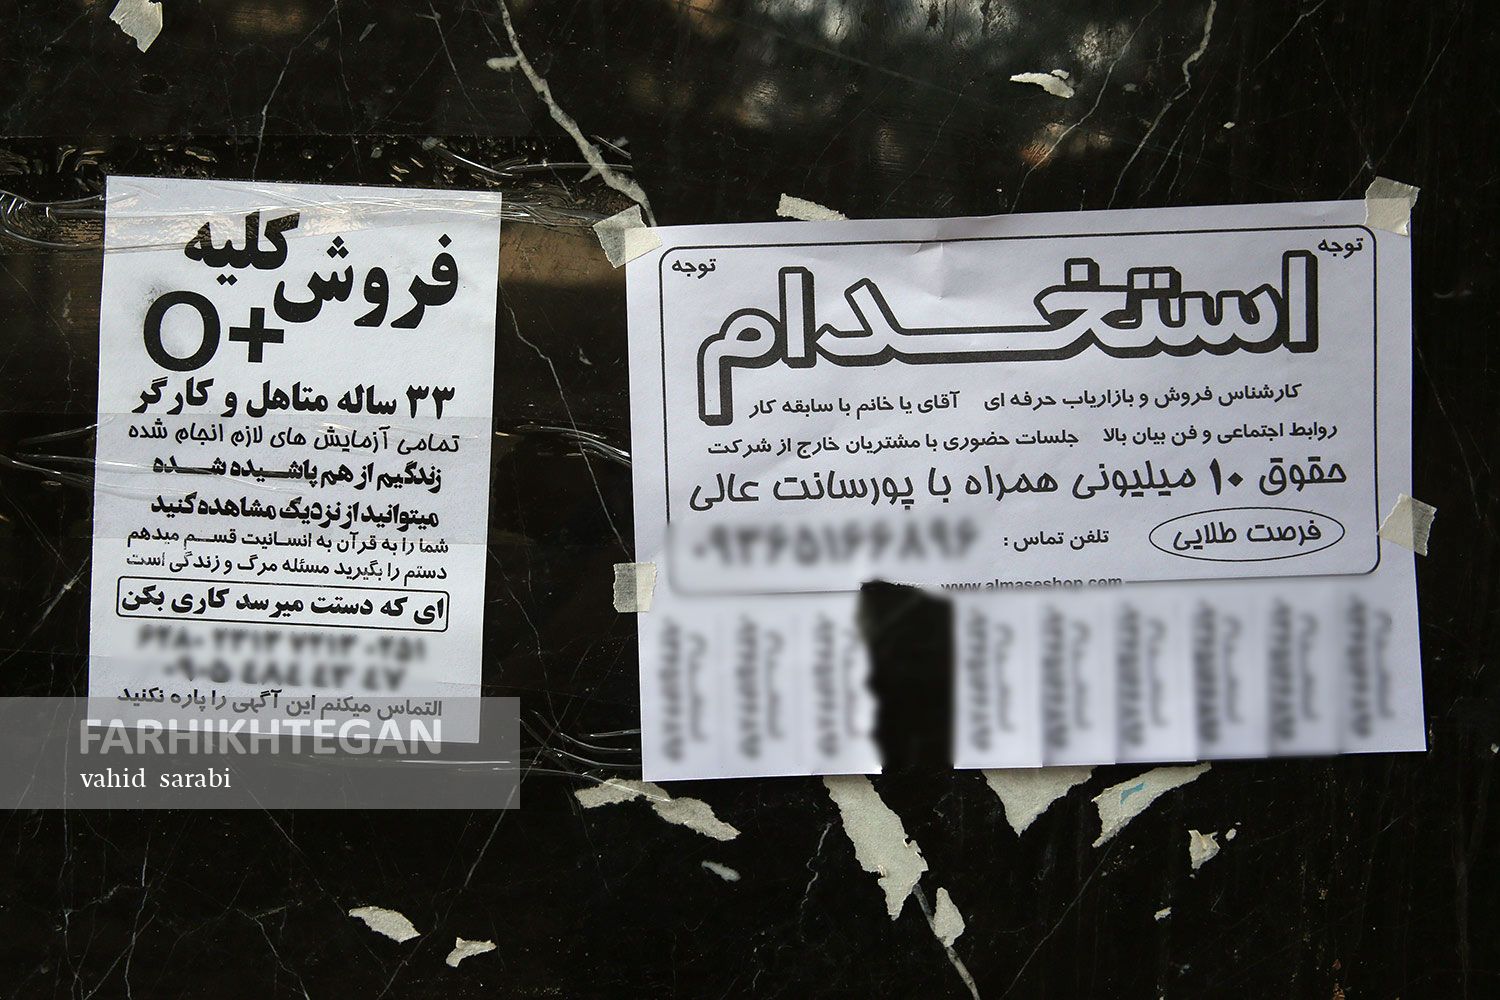 فروش کلیه
O+
۳۳ ساله متاهل و کارگر
تمامی آزمایش های لازم انجام شده
زندگیم از هم پاشیده شده
میتوانید از نزدیک مشاهده کنید
شما را به قرآن به انسانیت قسم میدهم
دستم را بگیرید مسئله مرگ و زندگی است
ای که دستت میرسد کاری بکن
التماس میکنم این آگهی را پاره نکنید
توجه
توجه
استخدام
کارشناس فروش و بازاریاب حرفه ای آقای یا خانم با سابقه کار
روابط اجتماعی و فن بیان بالا جلسات حضوری با مشتریان خارج از شرکت
حقوق ۱۰ میلیونی همراه با پورسانت عالی
فرصت طلایی تلفن تماس :
www.almaseshop.com
FARHIKHTEGAN
vahid sarabi